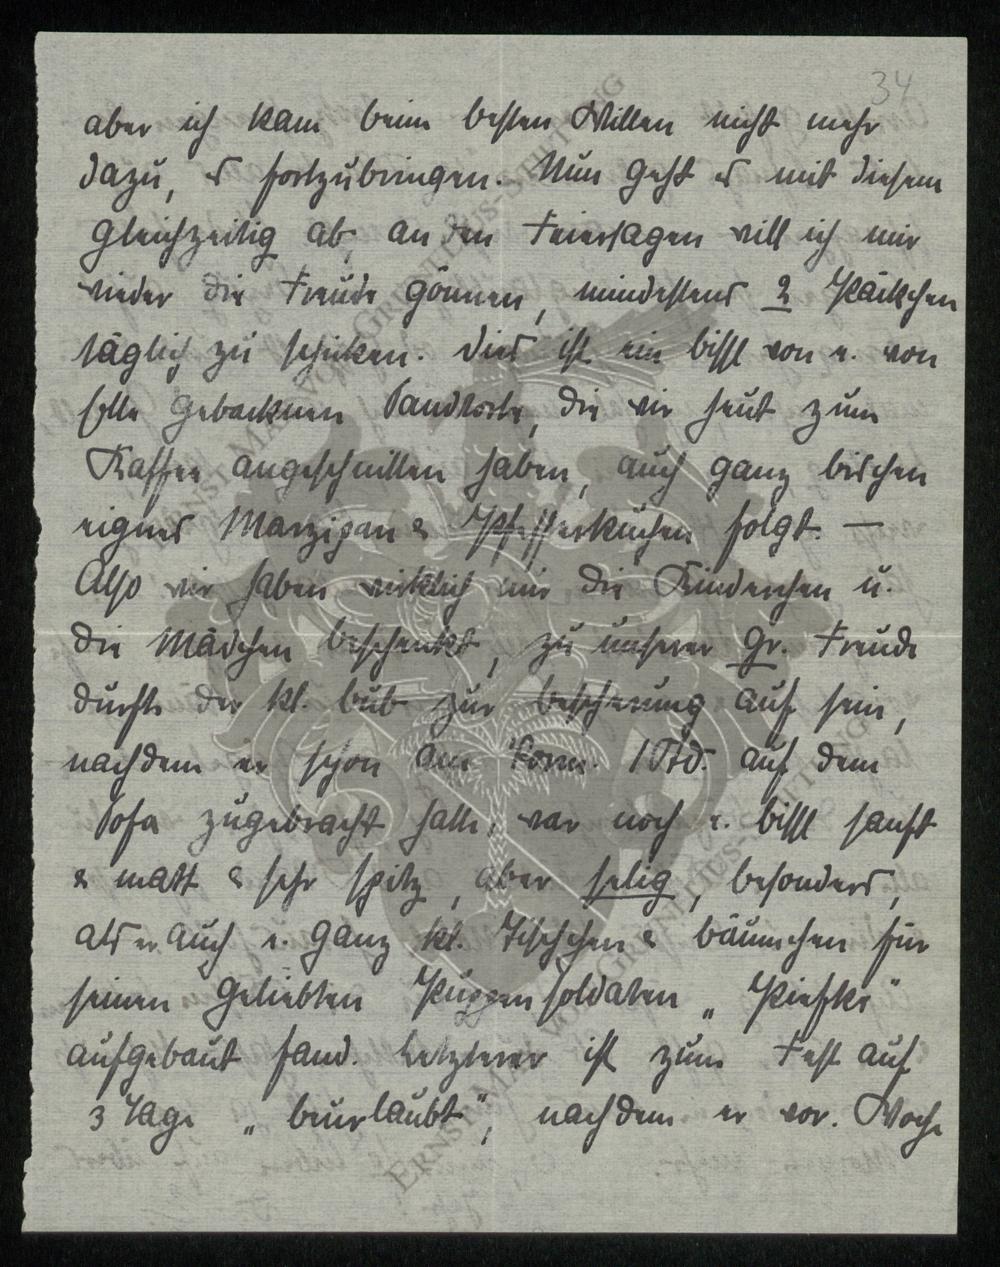 34
aber ich kam beim besten Willen nicht mehr
dazu, es fortzubringen. Nun geht es mit diesem
gleichzeitig ab, an den Feiertagen will ich mir
wieder die Freude gönnen, mindestens 2 Päckchen
täglich zu schicken. Dies ist ein bissl von e. von
selbst gebacknen Sandtorte, die wir heut zum
Kaffee angeschnitten haben, auch ganz bischen
eignes Marzipan & Pfefferkuchen folgt. —
Also wir haben wirklich nur die Kinderchen u.
die Mädchen beschenkt, zu unserer Gr. Freude
durfte der kl. bub zur bescherung auf sein,
nachdem er schon am Vorm. 1 Std. auf dem
Sofa zugebracht hatte, war noch e. bissl sanft
& matt & sehr spitz, aber selig, besonders,
als er auch e. ganz kl. Tischchen & bäumchen für
seinen geliebten Puppensoldaten „Piefke"
aufgebaut fand. Letzterer ist zum Fest auf
3 Tage „beurlaubt", nachdem er vor. Woche
ERNST MAX VON GRUNELIUS-STIFTUNG
ERNST MAX VON GRUNELIUS-STIFTUNG